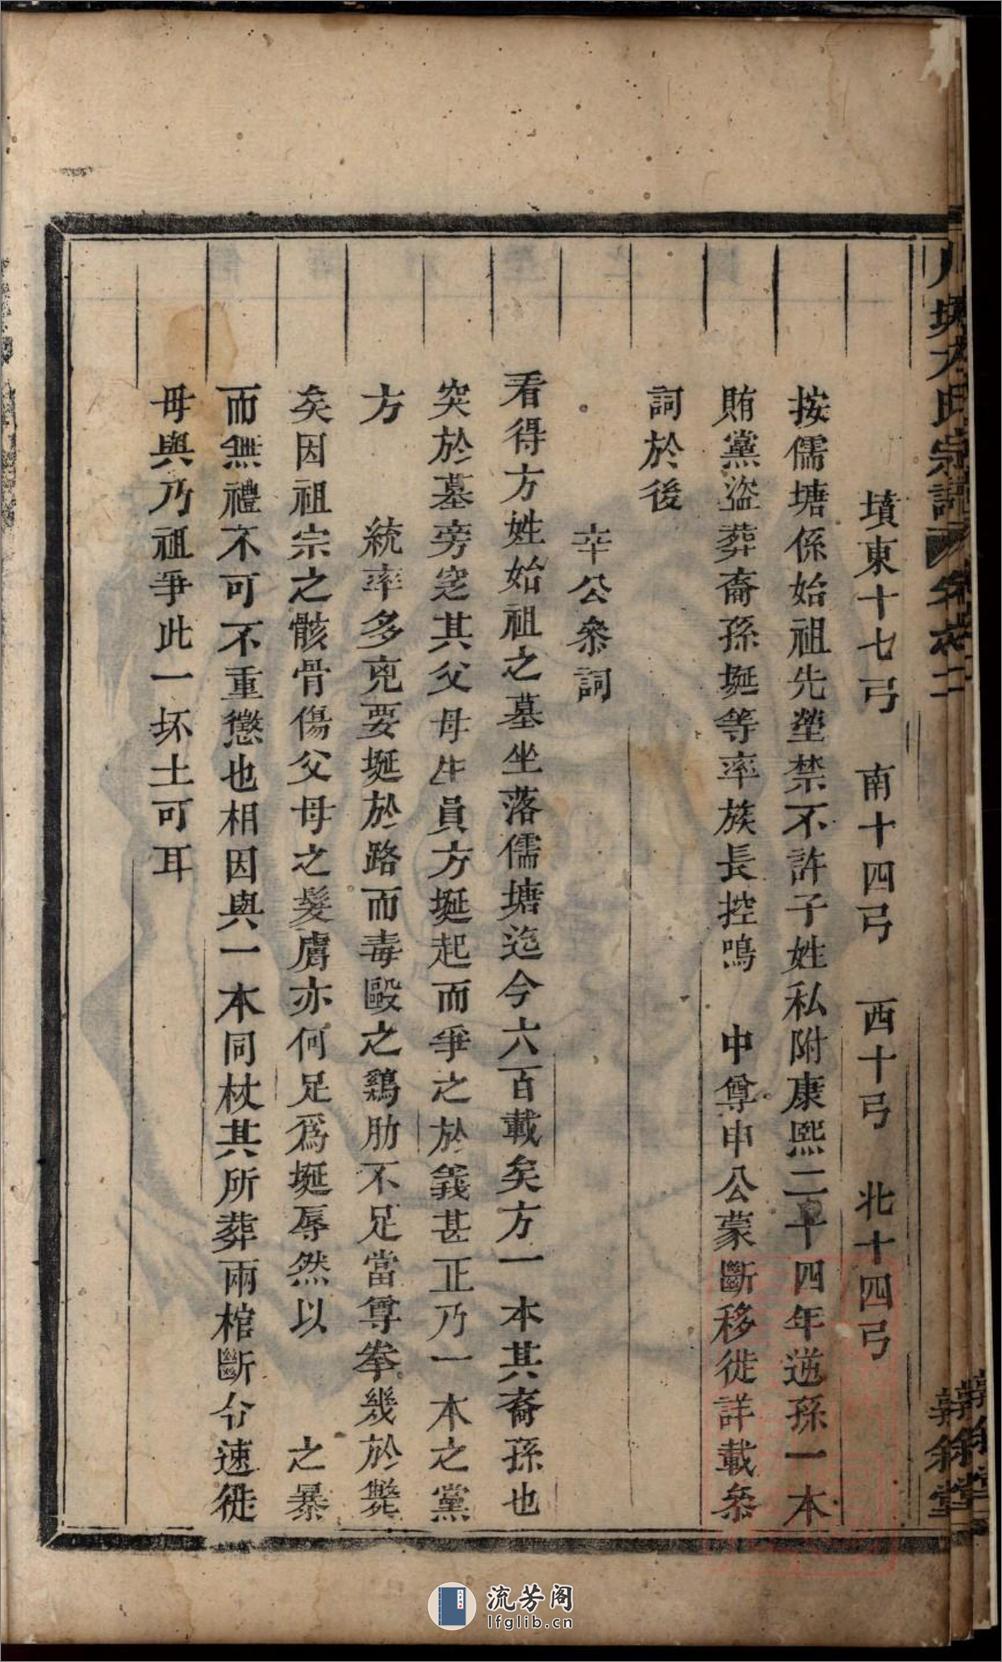 墳東十七弓　南十四弓　西十弓　北十四弓
按儒塘係始祖先塋禁不許子姓私附康熙二十四年逆孫一本
賄黨盜葬裔孫埏等率族長控鳴　中尊申公蒙斷移徙詳載叅
詞於後
辛公叅詞
看得方姓始祖之墓坐落儒塘迄今六百載矣方一本其裔孫也
突於墓旁窆其父母生員方埏起而爭之於義甚正乃一本之黨
方　　統率多兇要埏於路而毒毆之鷄肋不足當尊拳幾於斃
矣因祖宗之骸骨傷父母之髮膚亦何足爲埏辱然以　　之暴
而無禮不可不重懲也相因與一本同杖其所葬兩棺斷令速徙
毋與乃祖爭此一坏土可耳
方氏宗譜　卷之二
敘倫堂
流芳阁
lfglib.cn